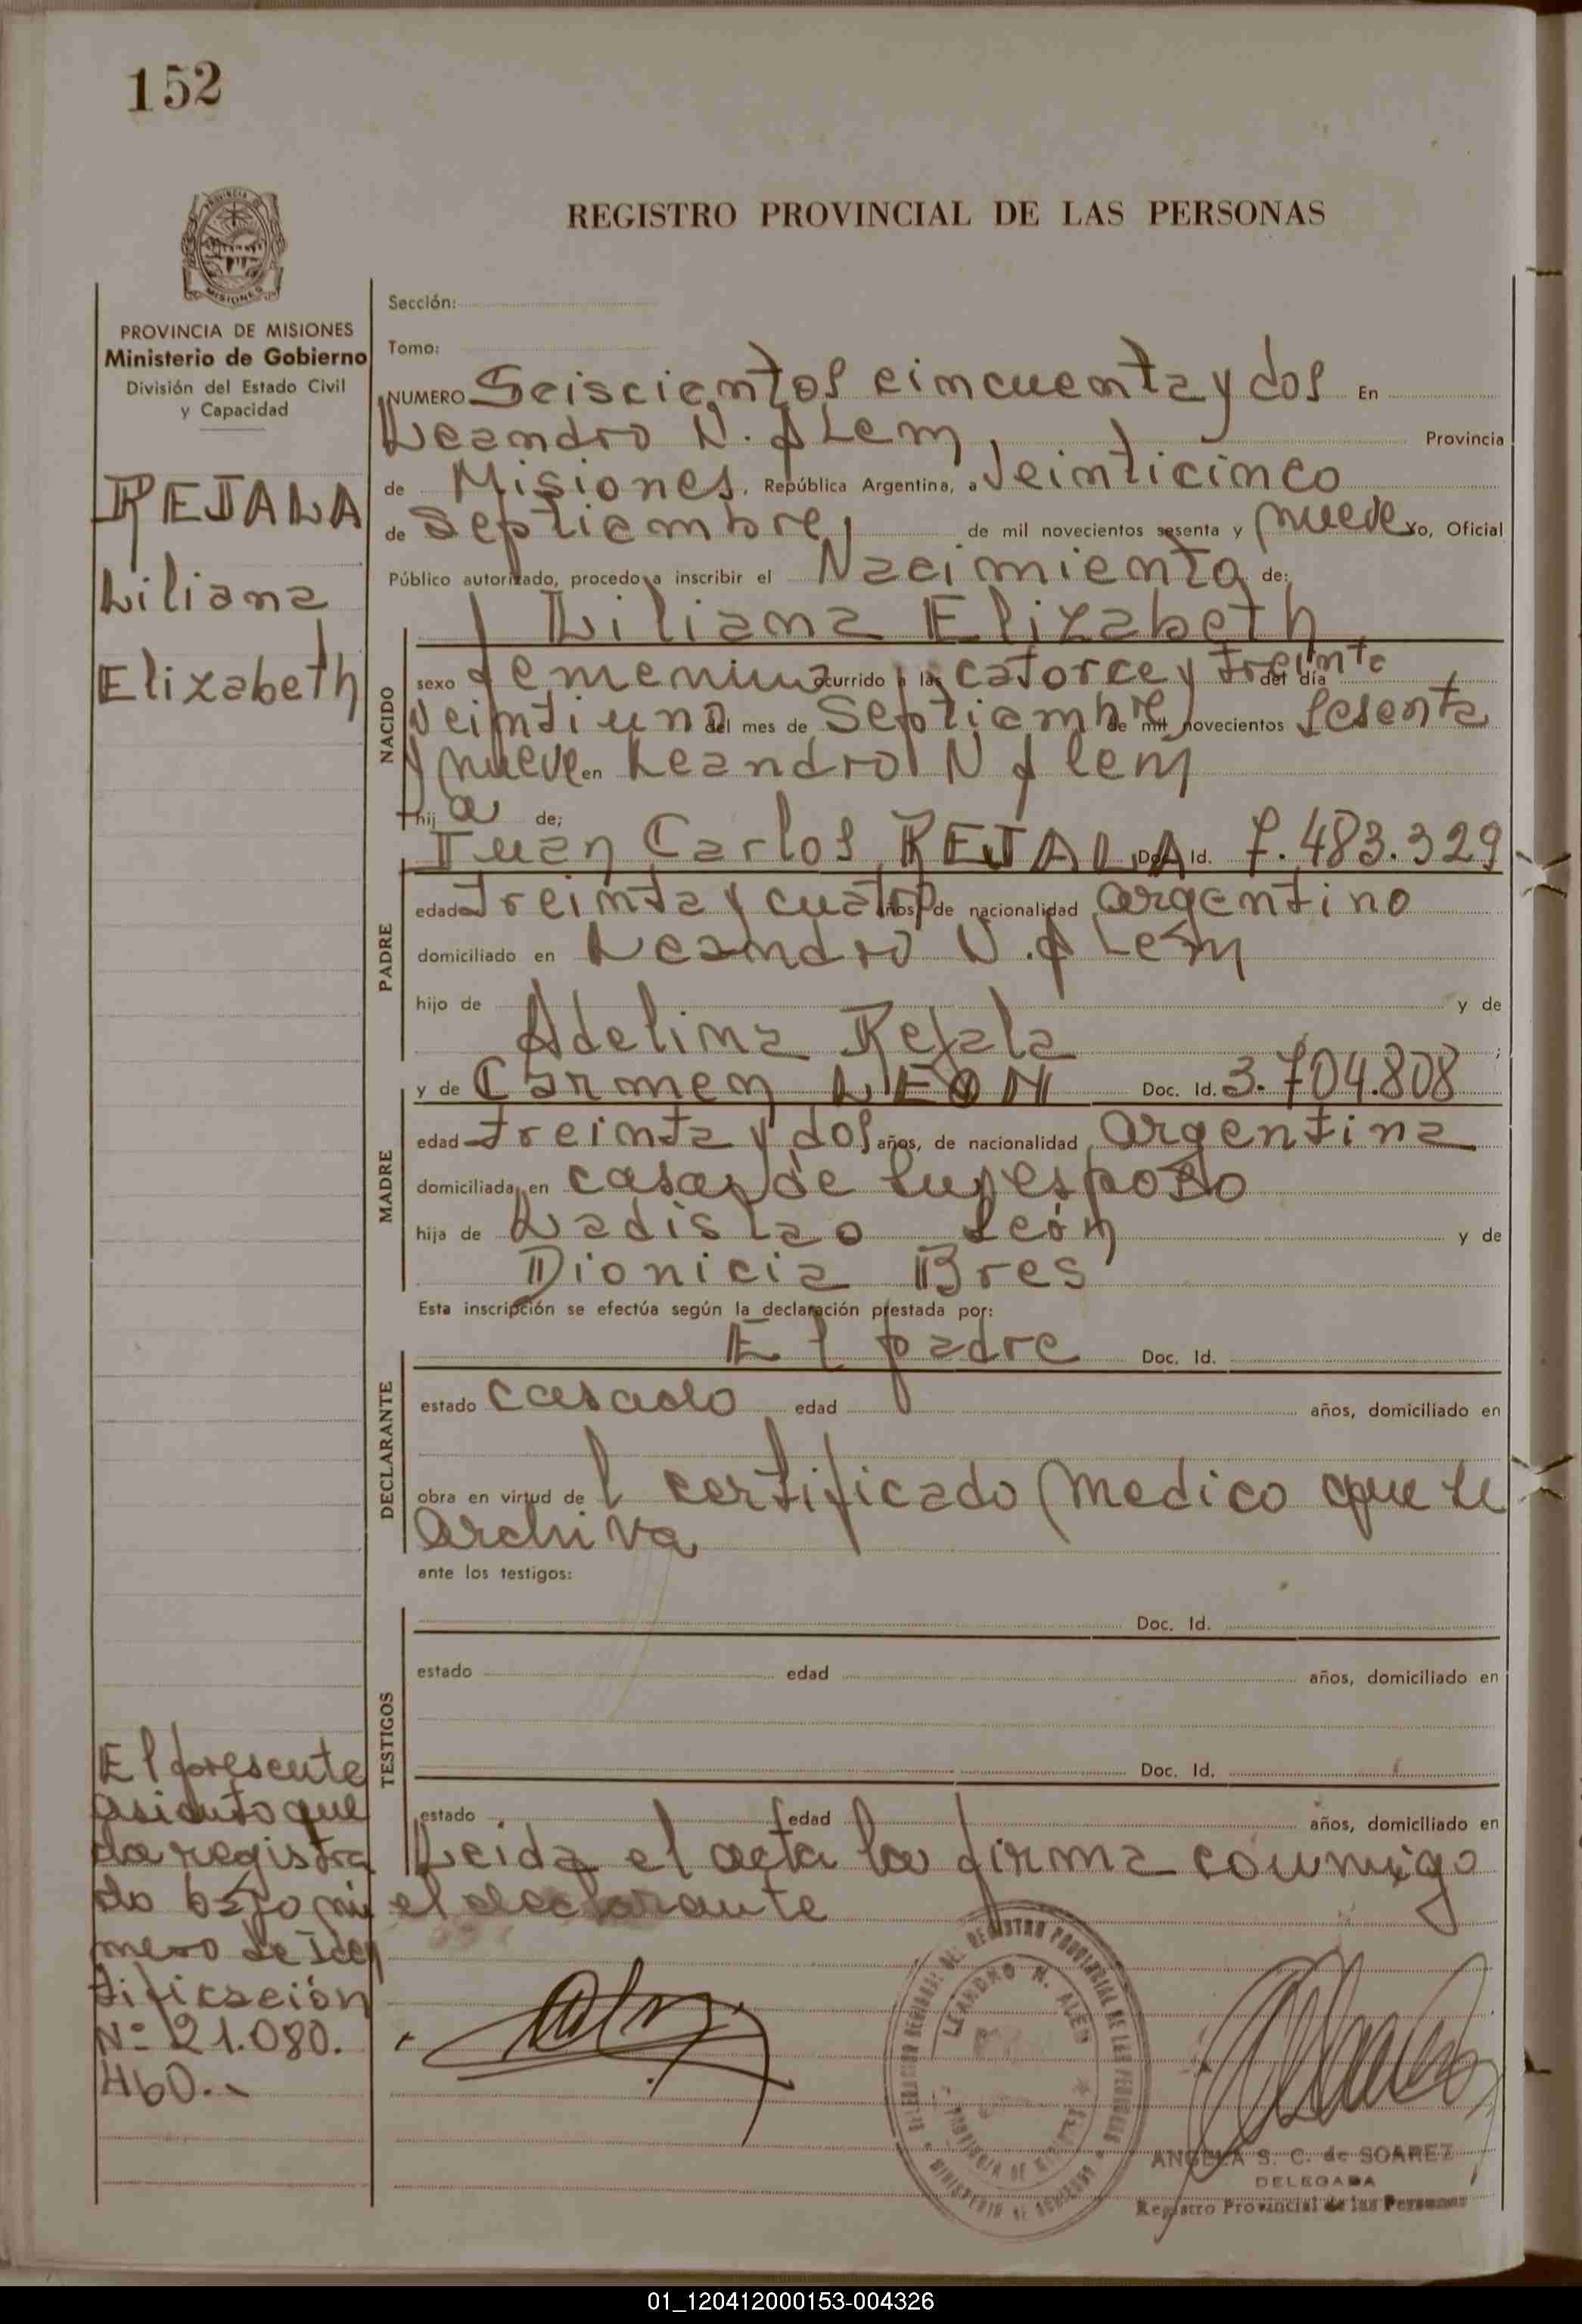 152
REGISTRO PROVINCIAL DE LAS PERSONAS
MISIONES
PROVINCIA DE MISIONES
Ministerio de Gobierno
División del Estado Civil
y Capacidad
REJALA
Liliana
Elizabeth
Sección:
Tomo:
NUMERO Seiscientos cincuenta y dos En
Leandro N. Alem, Provincia
de Misiones, República Argentina, a Veinticinco
de Septiembre, de mil novecientos sesenta y nueve yo, Oficial
Público autorizado, procedo a inscribir el Nacimiento de:
Liliana Elizabeth
NACIDO
sexo femenino ocurrido a las catorce y treinta del día
veintiuno del mes de Septiembre de mil novecientos sesenta
y nueve en Leandro N Alem
hija de;
Juan Carlos REJALA Doc. Id. 7.483.329
PADRE
edad treinta y cuatro años, de nacionalidad argentino
domiciliado en Leandro N. Alem
hijo de y de
Adelina Rejala ;
y de Carmen LEON Doc. Id. 3.704.808
MADRE
edad treinta y dos años, de nacionalidad argentina
domiciliada en casa de su esposo
hija de Ladislao León y de
Dionicia Bres
Esta inscripción se efectúa según la declaración prestada por:
El padre Doc. Id.
DECLARANTE
estado casado edad años, domiciliado en
obra en virtud de l certificado medico que se
archiva
ante los testigos:
Doc. Id.
TESTIGOS
estado edad años, domiciliado en
Doc. Id.
estado edad años, domiciliado en
Leida el acta la firma conmigo
el declarante
El presente
asiento que
da registra
do bajo nú
mero de Iden
tificación
Nº 21.080.
460.-
LEANDRO N. ALEM
PROVINCIA DE MISIONES
MINISTERIO DE GOBIERNO
ANGELA S. C. de SOAREZ
DELEGADA
Registro Provincial de las Personas
01_120412000153-004326